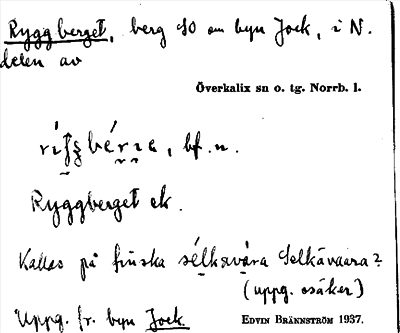 Ryggberget, berg SO om byn Jock, i N.
delen av
Överkalix sn o. tg. Norrb. l.
bf. n.
Ryggberget ek.
Kallas på finska Selkävaara?
(uppg. osäker)
Uppg. fr. byn Jock
EDVIN BRÄNNSTRÖM 1937.